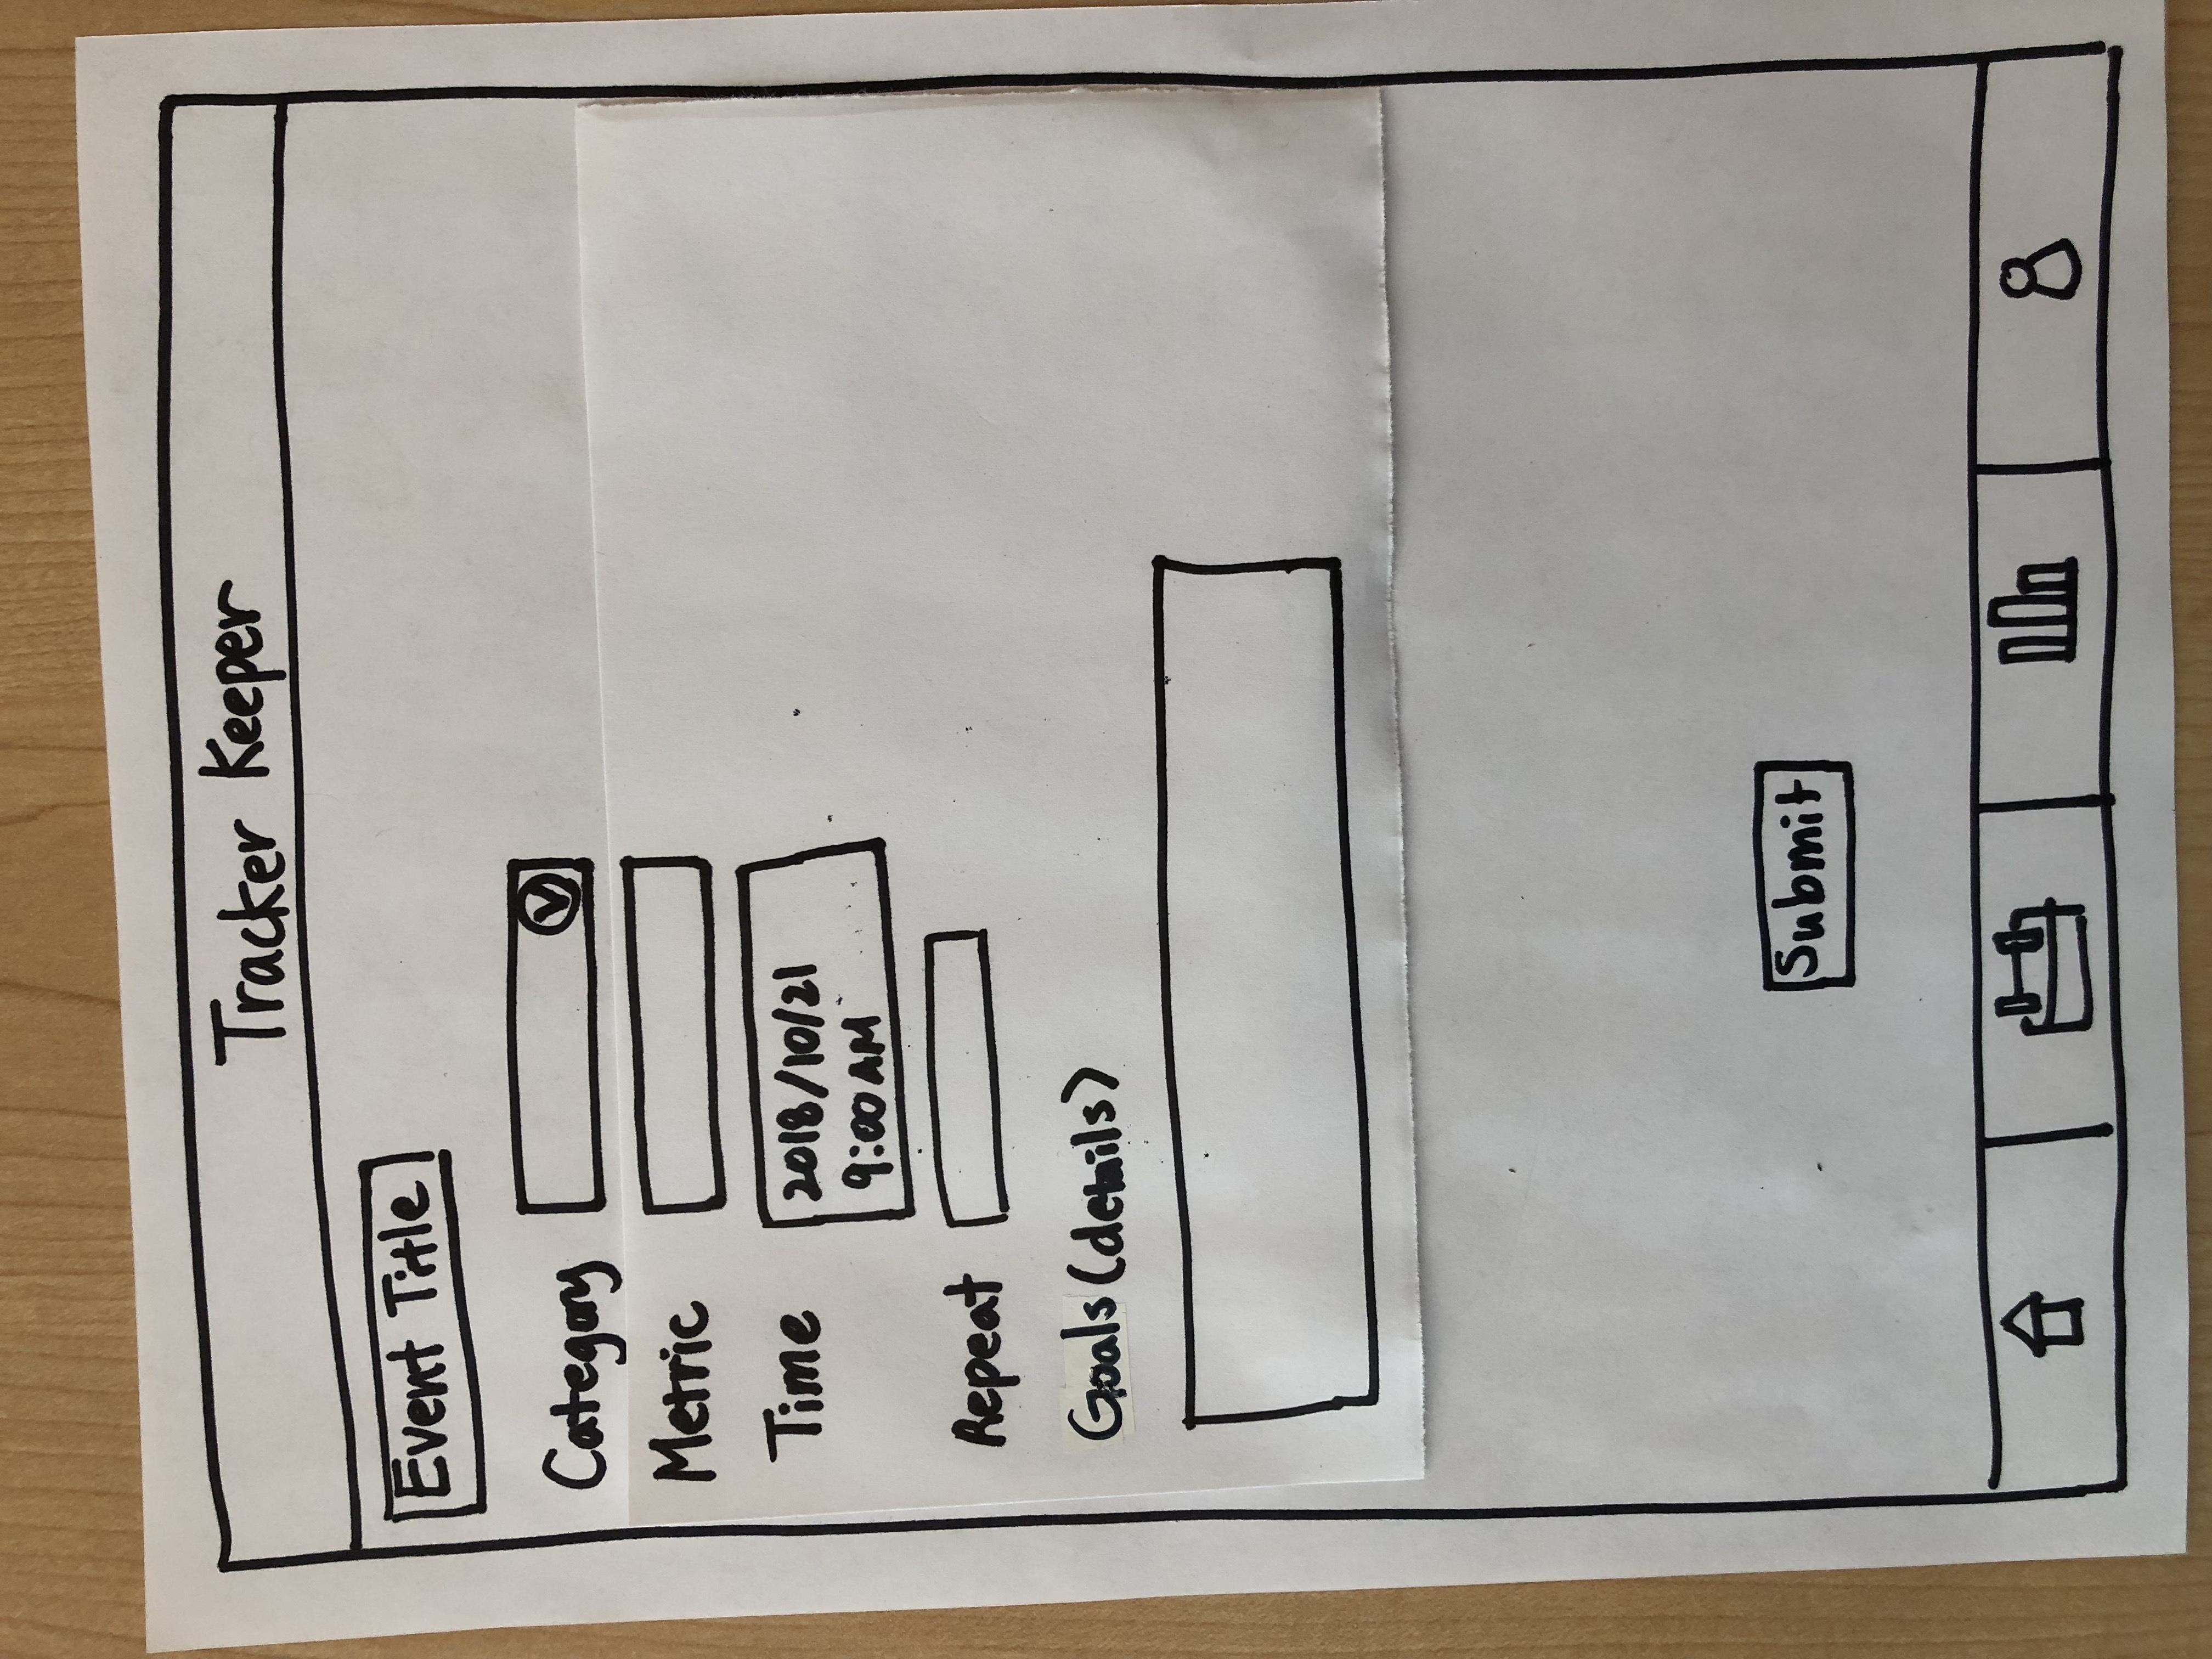 Tracker Keeper
Event Title
Category
Metric
Time
2018/10/21
9:00 AM
Repeat
Goals (details)
Submit